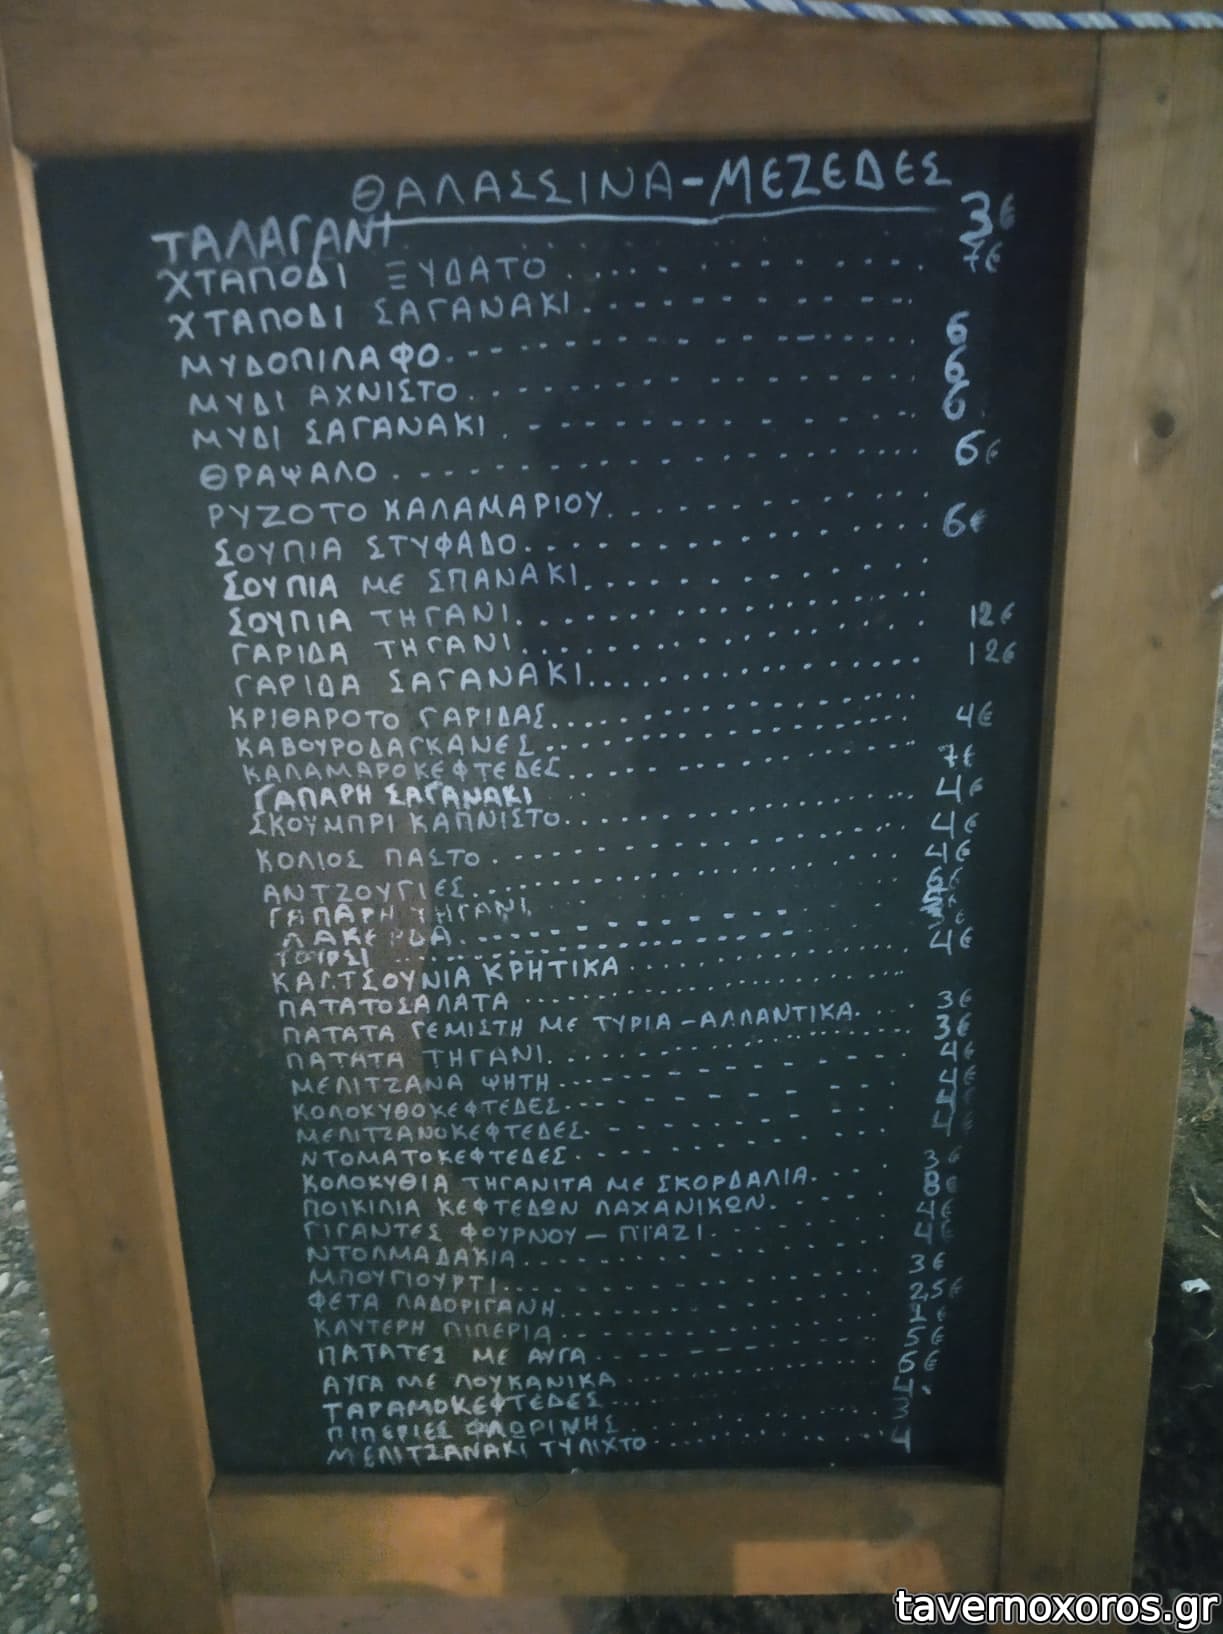 ΘΑΛΑΣΣΙΝΑ-ΜΕΖΕΔΕΣ
ΤΑΛΑΓΑΝΙ 3€
ΧΤΑΠΟΔΙ ΞΥΔΑΤΟ 7€
ΧΤΑΠΟΔΙ ΣΑΓΑΝΑΚΙ
ΜΥΔΟΠΙΛΑΦΟ 6
ΜΥΔΙ ΑΧΝΙΣΤΟ 6
ΜΥΔΙ ΣΑΓΑΝΑΚΙ 6
ΘΡΑΨΑΛΟ 6€
ΡΥΖΟΤΟ ΚΑΛΑΜΑΡΙΟΥ
ΣΟΥΠΙΑ ΣΤΥΦΑΔΟ 6€
ΣΟΥΠΙΑ ΜΕ ΣΠΑΝΑΚΙ
ΣΟΥΠΙΑ ΤΗΓΑΝΙ
ΓΑΡΙΔΑ ΤΗΓΑΝΙ 12€
ΓΑΡΙΔΑ ΣΑΓΑΝΑΚΙ 12€
ΚΡΙΘΑΡΟΤΟ ΓΑΡΙΔΑΣ
ΚΑΒΟΥΡΟΔΑΓΚΑΝΕΣ 4€
ΚΑΛΑΜΑΡΟΚΕΦΤΕΔΕΣ
ΓΑΠΑΡΗ ΣΑΓΑΝΑΚΙ 7€
ΣΚΟΥΜΠΡΙ ΚΑΠΝΙΣΤΟ 4€
ΚΟΛΙΟΣ ΠΑΣΤΟ 4€
ΑΝΤΖΟΥΓΙΕΣ 4€
ΓΑΠΑΡΗ ΤΗΓΑΝΙ
ΛΑΚΕΡΔΑ
ΤΟΥΡΣΙ
ΚΑΛΤΣΟΥΝΙΑ ΚΡΗΤΙΚΑ 4€
ΠΑΤΑΤΟΣΑΛΑΤΑ
ΠΑΤΑΤΑ ΓΕΜΙΣΤΗ ΜΕ ΤΥΡΙΑ-ΑΛΛΑΝΤΙΚΑ 3€
ΠΑΤΑΤΑ ΤΗΓΑΝΙ 3€
ΜΕΛΙΤΖΑΝΑ ΨΗΤΗ 4€
ΚΟΛΟΚΥΘΟΚΕΦΤΕΔΕΣ 4€
ΜΕΛΙΤΖΑΝΟΚΕΦΤΕΔΕΣ 4€
ΝΤΟΜΑΤΟΚΕΦΤΕΔΕΣ 4€
ΚΟΛΟΚΥΘΙΑ ΤΗΓΑΝΙΤΑ ΜΕ ΣΚΟΡΔΑΛΙΑ 3€
ΠΟΙΚΙΛΙΑ ΚΕΦΤΕΔΩΝ ΛΑΧΑΝΙΚΩΝ 8€
ΓΙΓΑΝΤΕΣ ΦΟΥΡΝΟΥ - ΠΙΑΖΙ 4€
ΝΤΟΛΜΑΔΑΚΙΑ 4€
ΜΠΟΥΓΙΟΥΡΤΙ 3€
ΦΕΤΑ ΛΑΔΟΡΙΓΑΝΗ 2,5€
ΚΑΥΤΕΡΗ ΠΙΠΕΡΙΑ 1€
ΠΑΤΑΤΕΣ ΜΕ ΑΥΓΑ 5€
ΑΥΓΑ ΜΕ ΛΟΥΚΑΝΙΚΑ 6€
ΤΑΡΑΜΟΚΕΦΤΕΔΕΣ 4
ΠΙΠΕΡΙΕΣ ΦΛΩΡΙΝΗΣ 3
ΜΕΛΙΤΖΑΝΑΚΙ ΤΥΛΙΧΤΟ 4
tavernoxoros.gr